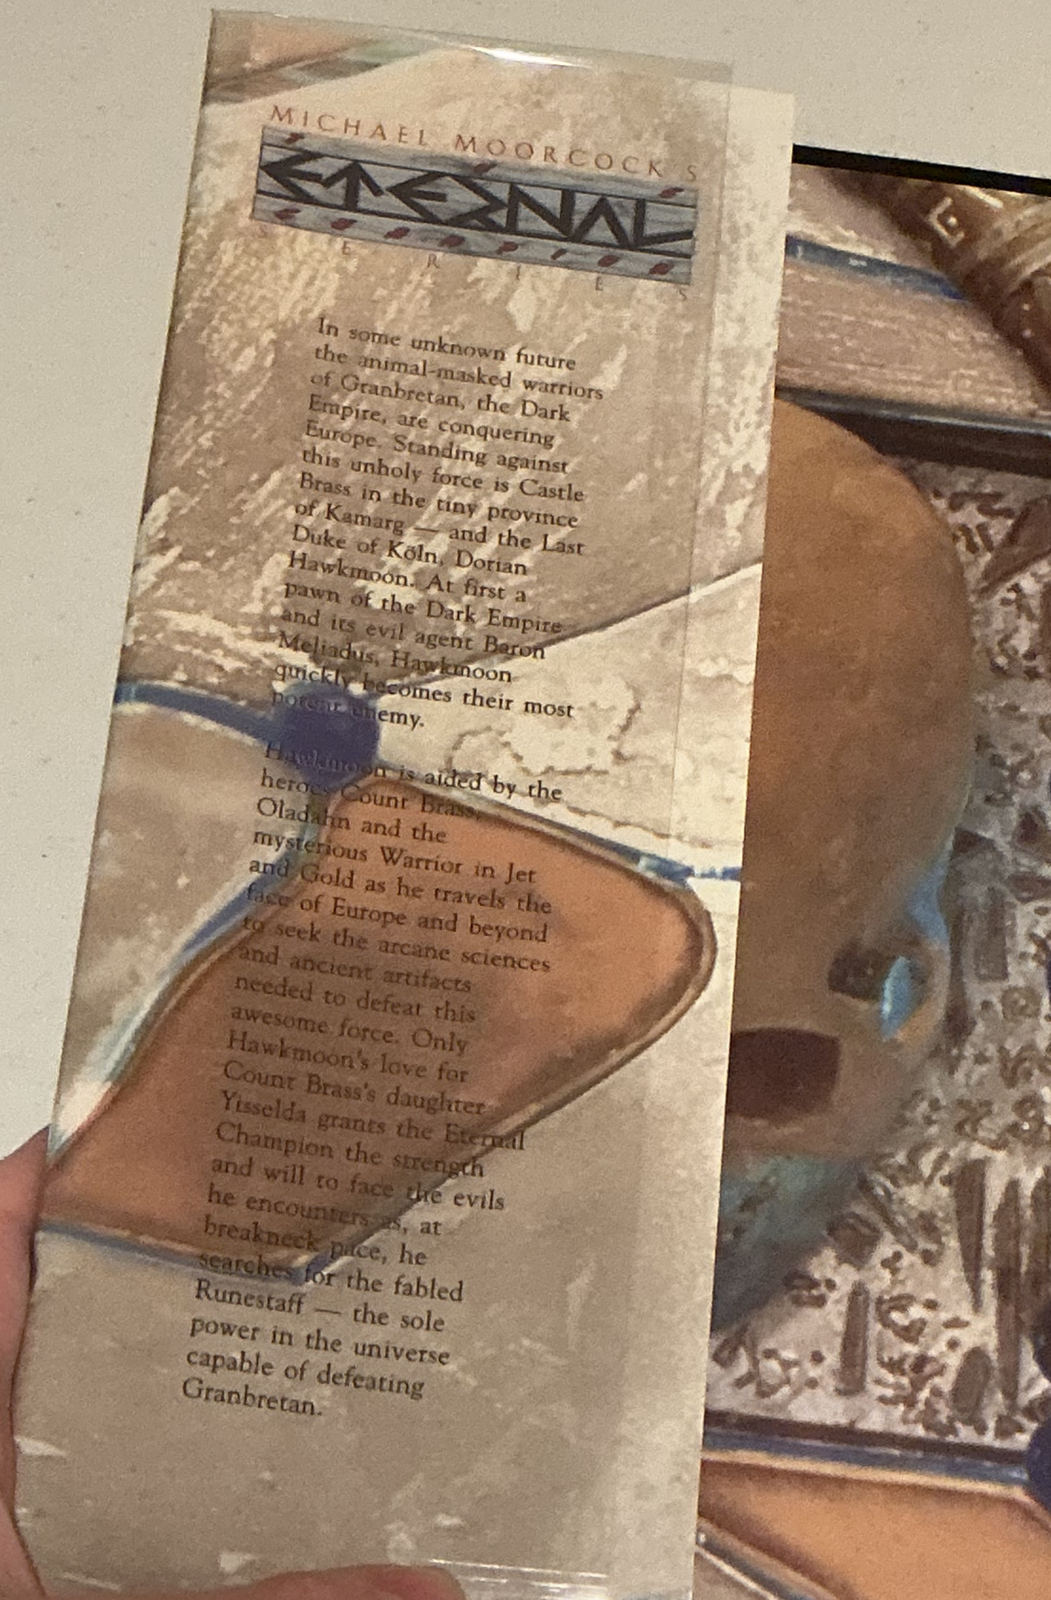 MICHAEL MOORCOCK'S
ETERNAL
CHAMPION
SERIES
In some unknown future
the animal-masked warriors
of Granbretan, the Dark
Empire, are conquering
Europe. Standing against
this unholy force is Castle
Brass in the tiny province
of Kamarg — and the Last
Duke of Köln, Dorian
Hawkmoon. At first a
pawn of the Dark Empire
and its evil agent Baron
Meliadus, Hawkmoon
quickly becomes their most
potent enemy.
Hawkmoon is aided by the
heroes Count Brass,
Oladahn and the
mysterious Warrior in Jet
and Gold as he travels the
face of Europe and beyond
to seek the arcane sciences
and ancient artifacts
needed to defeat this
awesome force. Only
Hawkmoon's love for
Count Brass's daughter
Yisselda grants the Eternal
Champion the strength
and will to face the evils
he encounters as, at
breakneck pace, he
searches for the fabled
Runestaff — the sole
power in the universe
capable of defeating
Granbretan.